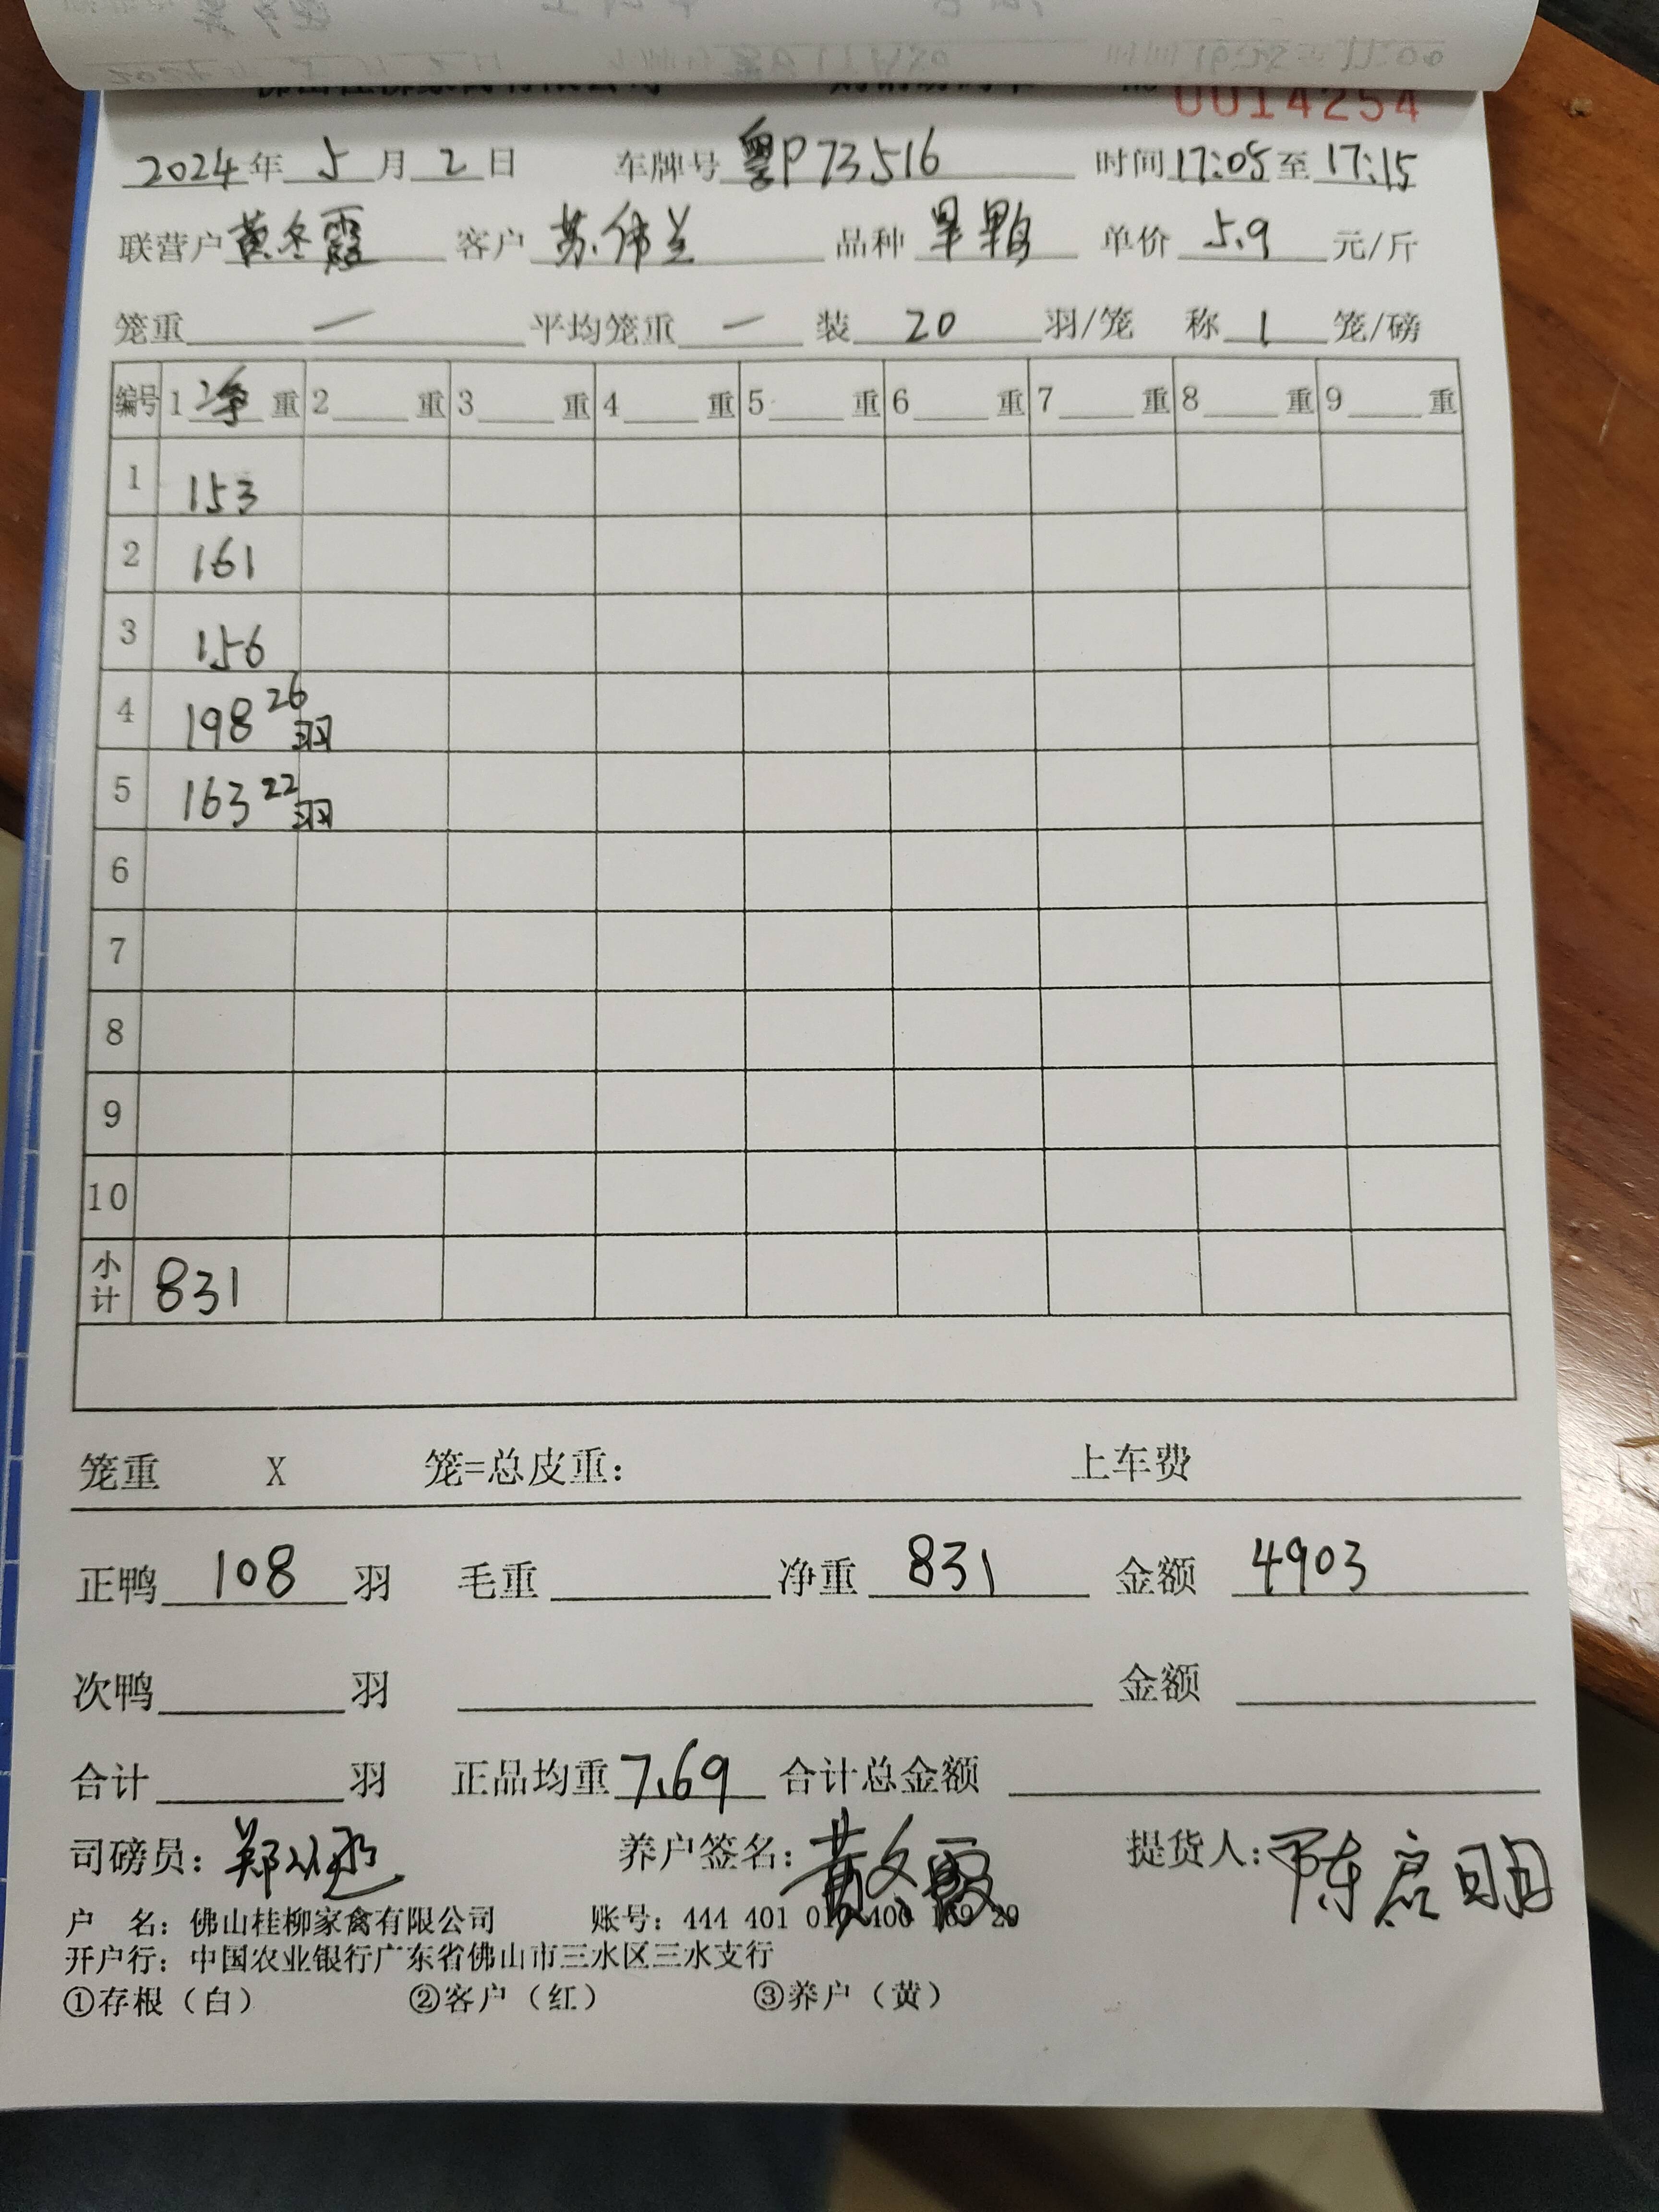 0014254
2024年 5月 2日 车牌号 粤P73516 时间 17:05 至 17:15
联营户 黄冬霞 客户 苏伟兰 品种 旱鸭 单价 5.9 元/斤
笼重 一 平均笼重 一 装 20 羽/笼 称 1 笼/磅
编号 1 净 重 2 重 3 重 4 重 5 重 6 重 7 重 8 重 9 重
1 153
2 161
3 156
4 198 26羽
5 163 22羽
6
7
8
9
10
小计 831
笼重 X 笼=总皮重: 上车费
正鸭 108 羽 毛重 净重 831 金额 4903
次鸭 羽 金额
合计 羽 正品均重 7.69 合计总金额
司磅员: 养户签名: 黄冬霞 提货人: 陈启明
户 名: 佛山桂柳家禽有限公司 账号: 444 401 29
开户行: 中国农业银行广东省佛山市三水区三水支行
①存根(白) ②客户(红) ③养户(黄)